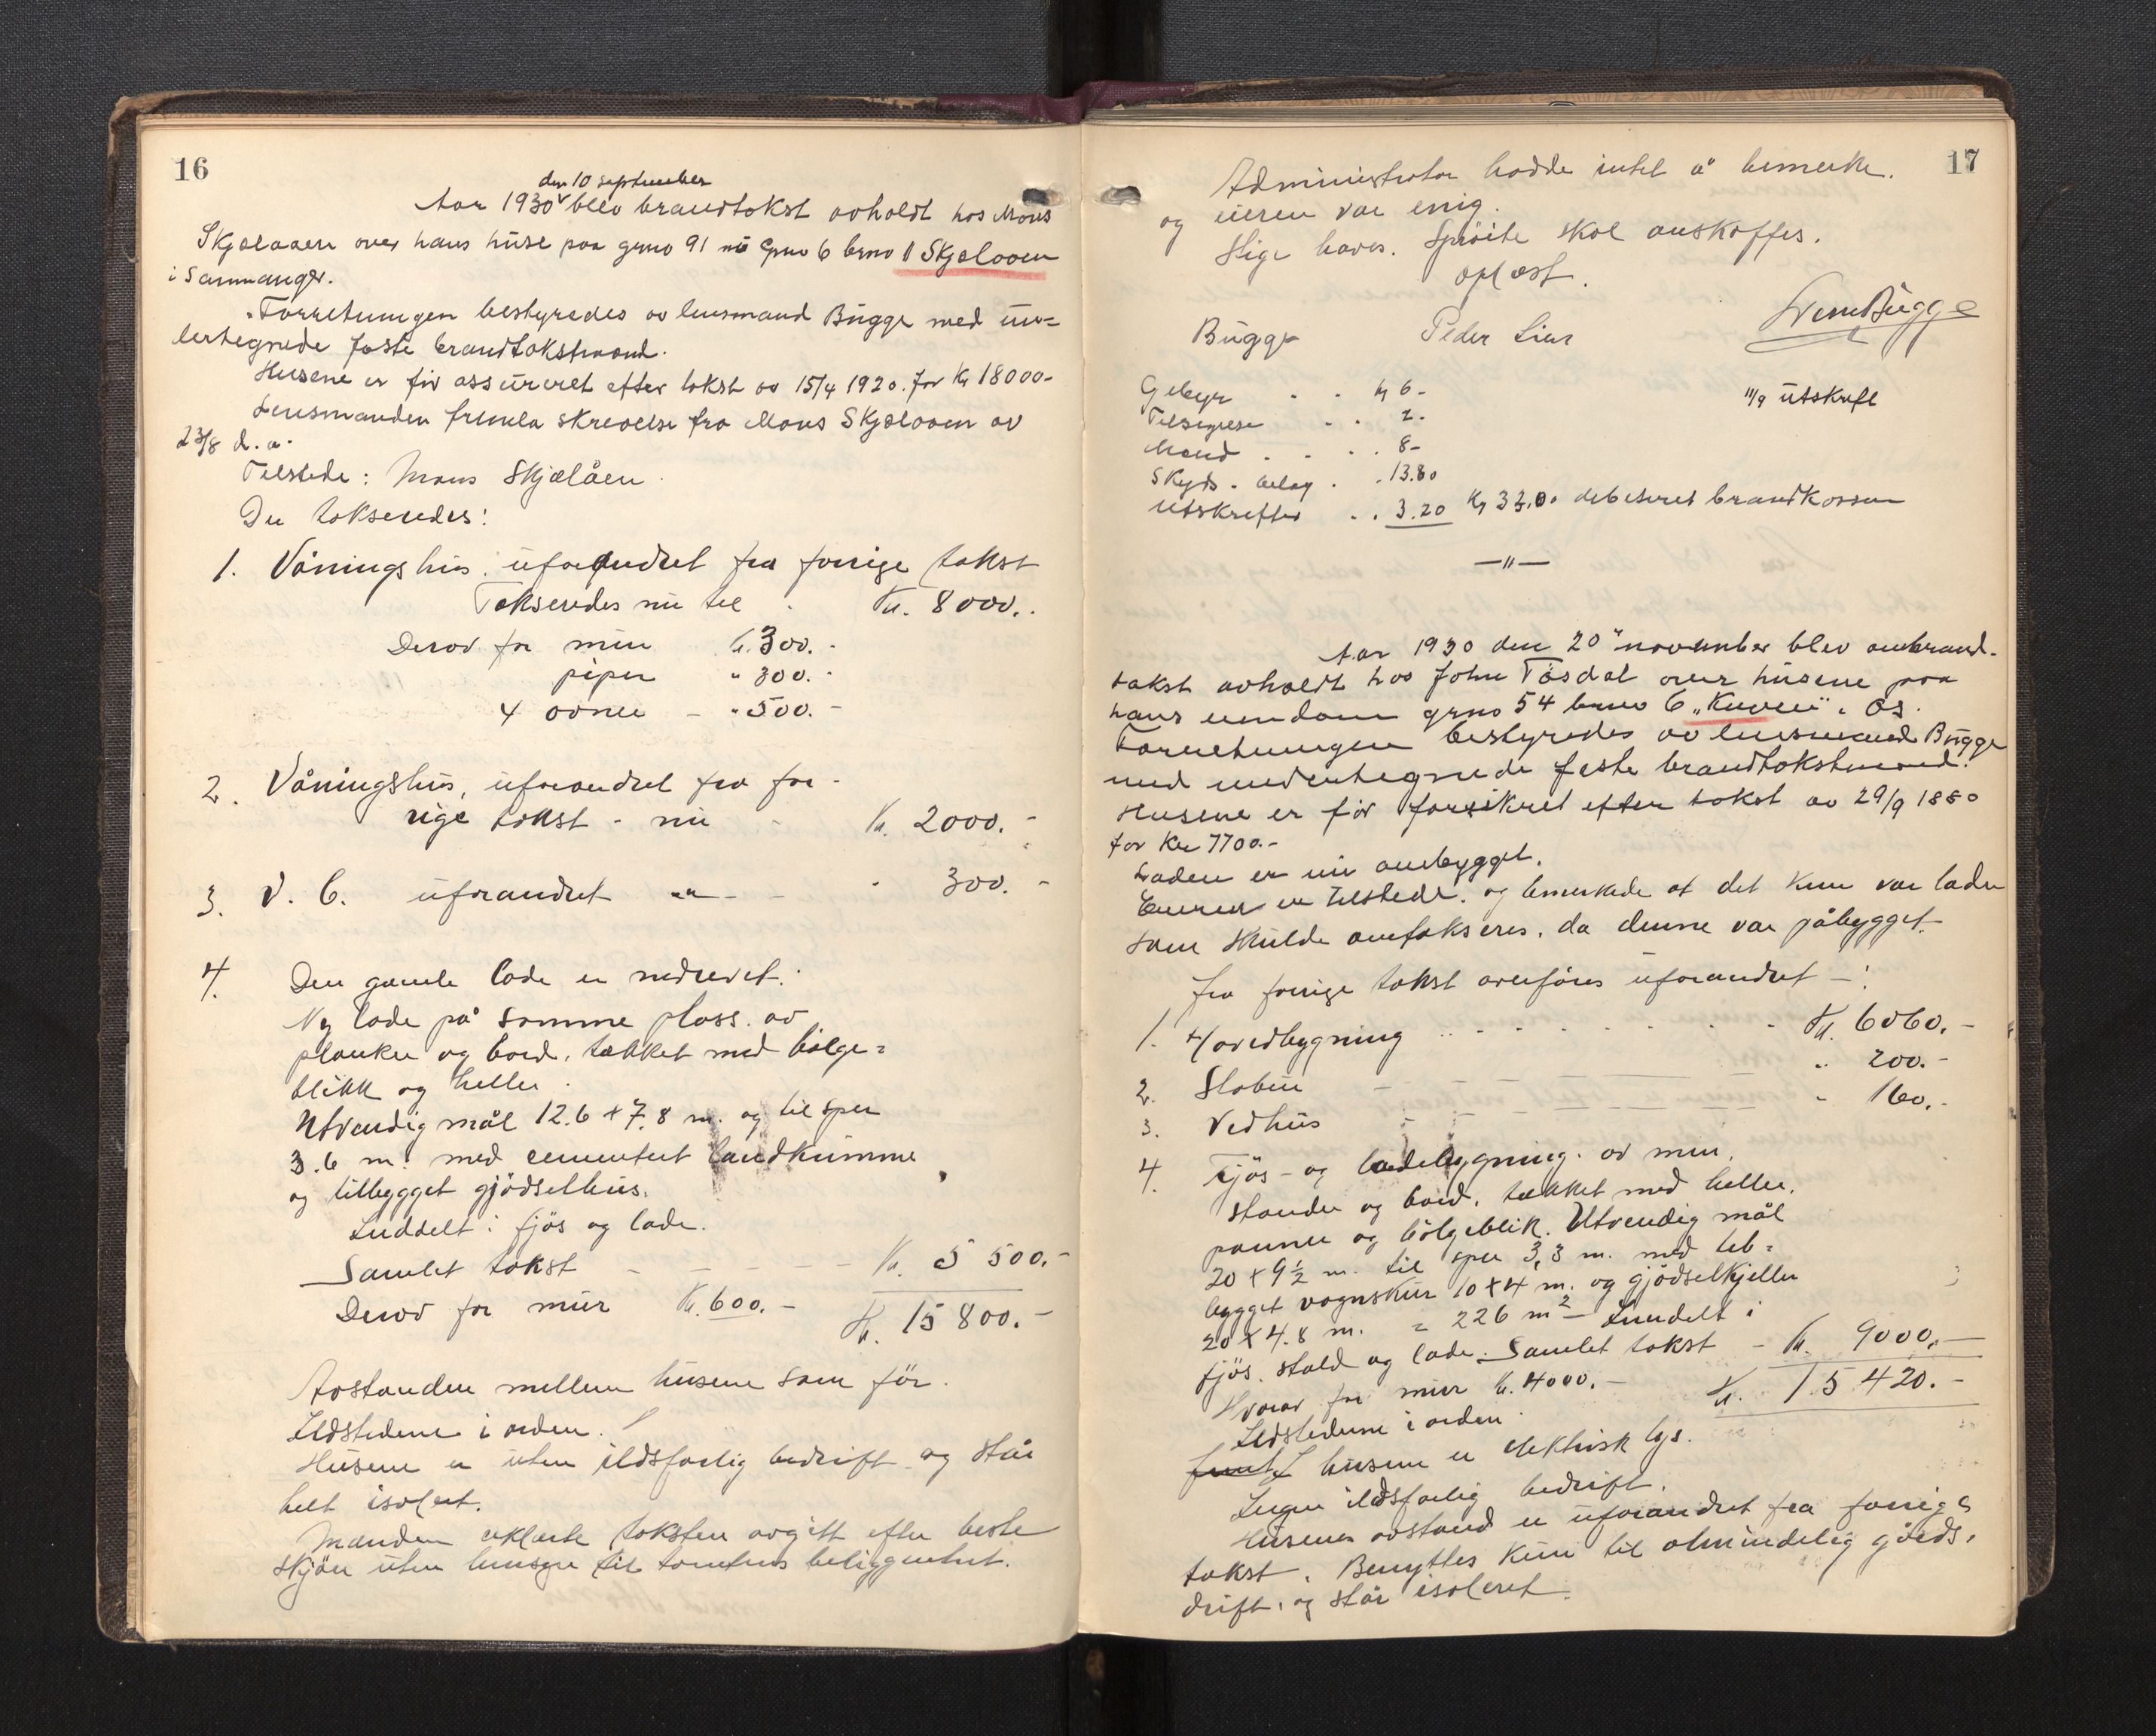 16
den 10 september
Aar 1930 blev brandtakst avholdt hos Mons
Skjælaaen over hans huse paa grno 91 nu Gno 6 brno 1 Skjælaaen
i Samnanger.
Forretningen bestyredes av lensmand Bügge med un-
tertegnede faste brandtakstmænd.
Husene er før assureret efter takst av 15/4 1920 for Kr 18000-
Lensmanden fremla skrivelse fra Mons Skjælaaen av
23/8 d. a.
Tilstede: Mons Skjælåen.
Der takseredes:
1. Våningshus. uforandret fra forrige takst
Takseredes nu til Kr. 8000..
Derav for mur Kr. 300.-
piper " 300.-
4 ovner - " 500.-
2. Våningshus, uforandret fra for-
rige takst - nu - Kr. 2000.-
3. V. C. uforandret -"- - - 300.-
4. Den gamle lade er nedrevet.
Ny lade på samme plass. av
planker og bord, tækket med bølge-
blikk og heller.
Utvendig mål 12.6 + 7.8 m. og til sper
3.6 m. med cementert landkumme
og tilbygget gjødselhus.
Inddelt i fjøs og lade.
Samlet takst - - - - - Kr. 5 500.-
Derav for mur Kr. 600.- Kr. 15 800.-
Avstanden mellem husene som før.
Ildstedene i orden.
Husene er uten ildsfarlig bedrift og står
helt isolert.
Mænden erklærte taksten avgitt efter beste
skjøn uten hensyn til tomtens beliggenhet.
17
Administrator hadde intet å bemerke.
og eieren var enig.
Stige haves. Sprøite skal anskaffes.
oplæst.
Bügge Peder Lien
11/9 utskrift
Gebyr . . Kr 6-
Tilsigelse . . 2.
Mænd . . . . 8-
Skyds. belæg . . 13.80
Utskrifter . . 3.20 Kr 33.00 debiteret brandkassen
—"—
Aar 1930 den 20 november blev ombrand-
takst avholdt hos John Tøsdal over husene paa
hans eiendom grno 54 brno 6 "Kuven" i Os.
Forretningen bestyredes av lensmand Bügge
med undertegnede faste brandtakstmænd.
Husene er før forsikret efter takst av 29/9 1880
for Kr 7700.-
Laden er nu ombygget.
Eieren er tilstede. og bemerkede at det kun var laden
som skulde omtakseres, da denne var påbygget.
Fra forrige takst overføres uforandret -:
1. Hovedbygning .. - - - - - - Kr. 6060.-
2. Stabur - - - - - - - .. 200.-
3. Vedhus - - - - - - - - 160.-
4. Fjøs- og ladebygning. av mur,
stander og bord, tækket med heller,
panner og bølgeblik. Utvendig mål
20 + 9½ m. til sper 3,3 m. med til-
bygget vognskur 10 + 4 m. og gjødselkjeller
20 + 4.8 m. = 226 m2 - Inndelt i
fjøs. stald og lade. Samlet takst - Kr. 9000,-
Hvorav for mur Kr. 4000.- Kr. 15 420.-
Ildstedene i orden.
I husene er elektrisk lys.
Ingen ildsfarlig bedrift.
Husenes avstand er uforandret fra forrige
takst. Benyttes kun til almindelig gårds-
drift, og står isoleret.